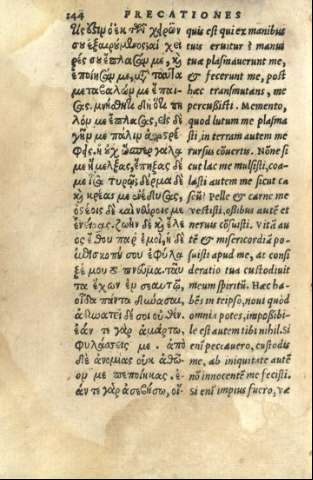 144 PRECATIONES
τίς ἐστιν ὁ ἐκ τῶν χειρῶν
σου ἐξαιρούμενος; αἱ χεῖ
ρές σου ἔπλασάν με, καὶ
ἐποίησάν με, μετὰ ταῦτα
μεταβαλών με ἔπαι-
σας. μνήσθητι δὴ ὅτι πη
λόν με ἔπλασας, εἰς δὲ
γῆν με πάλιν ἀποστρέ
φεις. ἢ οὐχ ὥσπερ γάλα
με ἤμελξας, ἔπηξας δέ
με ἴσα τυρῷ; δέρμα δὲ
καὶ κρέας με ἐνέδυσας,
ὀστέοις δὲ καὶ νεύροις με
ἔνειρας. ζωὴν δὲ καὶ ἔλε
ος ἔθου παρ' ἐμοὶ, ἡ δὲ
ἐπισκοπή σου ἐφύλα
ξέ μου τὸ πνεῦμα. ταῦ
τα ἔχων ἐν σεαυτῷ,
οἶδα πάντα δύνασαι,
ἀδυνατεῖ δέ σοι οὐθέν.
ἐάν τε γὰρ ἁμάρτω,
φυλάσσεις με. ἀπὸ
δὲ ἀνομίας οὐκ ἀθῶ-
όν με πεποίηκας. ἐ-
άν τε γὰρ ἀσεβήσω, οἴ-
quis est qui ex manibus
tuis eruitur? manus
tuæ plasmauerunt me,
& fecerunt me, post
hæc transmutans, me
percussisti. Memento,
quod lutum me plasma
sti, in terram autem me
rursus cōuertis. Nōne si
cut lac me mulsisti, coa-
lasti autem me sicut ca
seū? Pelle & carne me
vestisti, ossibus autē et
neruis cōsuisti. Vitā au
tē & misericordiā po-
suisti apud me, at consi
deratio tua custodiuit
meum spiritū. Hæc ha-
bēs in teipso, noui quòd
omnia potes, impossibi-
le est autem tibi nihil. Si
enī peccauero, custodis
me, ab iniquitate autē
nō innocentē me fecisti.
Si enī impius fuero, væ